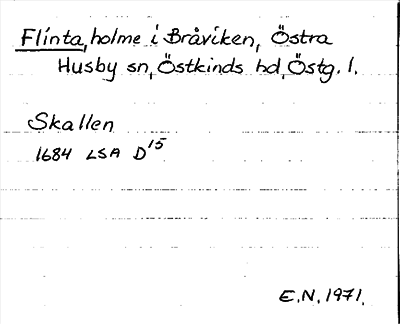 Flinta, holme i Bråviken, Östra
Husby sn, Östkinds hd, Östg. l.
Skallen
1684 LSA D15
E.N. 1971.